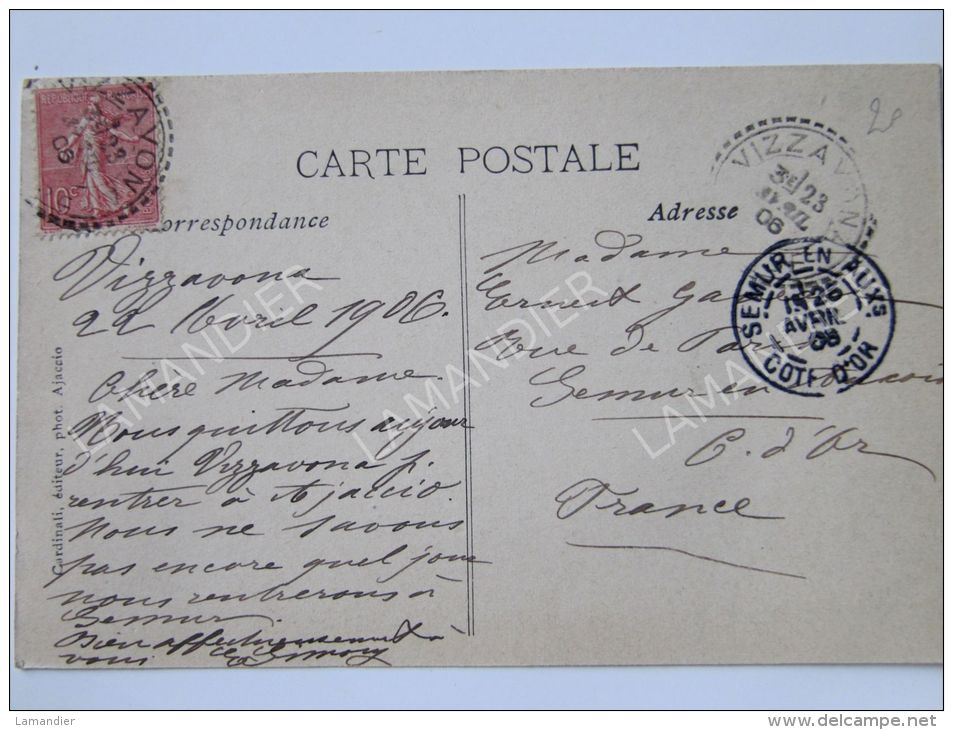 REPUBLIQUE FRANÇAISE
10c
CARTE POSTALE
Correspondance
Adresse
28
VIZZAVONA
3E/23
AVRIL
06
SEMUR EN AUXS
26
AVRIL
06
COTE D'OR
Vizzavona
22 Avril 1906.
Chère Madame.
Nous quittons aujour
d'hui Vizzavona p.
rentrer à Ajaccio.
Nous ne savons
pas encore quel jour
nous rentrerons à
Semur.
Bien affectueusement à
vous
Madame
Ernest
Rue de
Semur en
C. d'Or
France
Cardinali, éditeur, phot. Ajaccio
LAMANDIER
LAMANDIER
LAMANDIER
Lamandier
www.delcampe.net